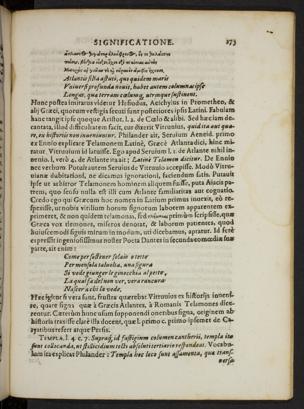 SIGNIFICATIONE. 273
Atlantis ficta astuti, qui quidem maris
Vniuersi profunda nouit, habet autem columnas ipse
Longas, quæ terram cælumq; utrimque sustinent.
Hunc poetam imitatus videtur Hesiodus, Aeschylus in Prometheo, &
alij Græci, quorum vestigia secuti sunt posteriores ipsi Latini. Fabulam
hanc tangit ipse quoque Aristot. l. 2. de Cœlo & alibi. Sed hæc iam de-
cantata, illud difficultatem facit, cur dixerit Vitruuius, quid ita aut qua-
re, ex historijs non inueniuntur. Philander ait, Seruium Aeneid. primo
ex Ennio explicare Telamonem Latinè, Græcè Atlanta dici, hinc mi-
ratur. Vitruuium id latuisse. Ego apud Seruium l. 1. de Aeneide nihil in-
uenio. l. verò 4. de Atlante ita ait: Latinè Telamon dicitur. De Ennio
nec verbum. Potuit autem Seruius de Vitruuio accepisse. Modò Vitru-
uianæ dubitationis, ne dicamus ignorationi, faciendum satis. Putauit
ipse ut arbitror Telamonem hominem aliquem fuisse, puta Aiacis pa-
trem, quo sensu nulla est illi cum Atlante familiaritas aut cognatio.
Credo ego qui Græcum hoc nomen in Latium primus inuexit, eò re-
spexisse, ut nobis virilium horum signorum laborem apparentem ex-
primeret, & non quidem telamonas, sed primùm scripsisse, quæ
Græca vox ærumnosos, miseros denotat, & laborum patientes, quod
huiuscemodi signis mirum in modum, uti dicebamus, aptatur. Id scitè
expressit ingeniosissimus noster Poeta Dantes in secunda comœdiæ suæ
parte, ait enim:
Come per sostener solaio ò tetto
Per mensola taluolta, una figura
Si vede giunger le ginocchia al petto,
La qual fa del non ver, vera rancura
Nascer à chi la vede.
Hæc igitur si vera sunt, frustra quærebat Vitruuius ex historijs inuenis-
se, quare signa quæ à Græcis Atlantes, à Romanis Telamones dice-
rentur. Cæterùm hunc usum supponendi oneribus signa, originem ab
historia traxisse clarè illa docent, quæ l. primo c. primo ipsemet de Ca-
ryatibus refert atque Persis.
TEMPLA, l. 4. c. 7. Supraq́; id fastigium columen cantherij, templa ita
sunt collocanda, ut stillicidium tecti absoluti tertiario respondeat. Vocabu-
lum ita explicat Philander: Templa hoc loco sunt assamenta, quæ trans-
uersa